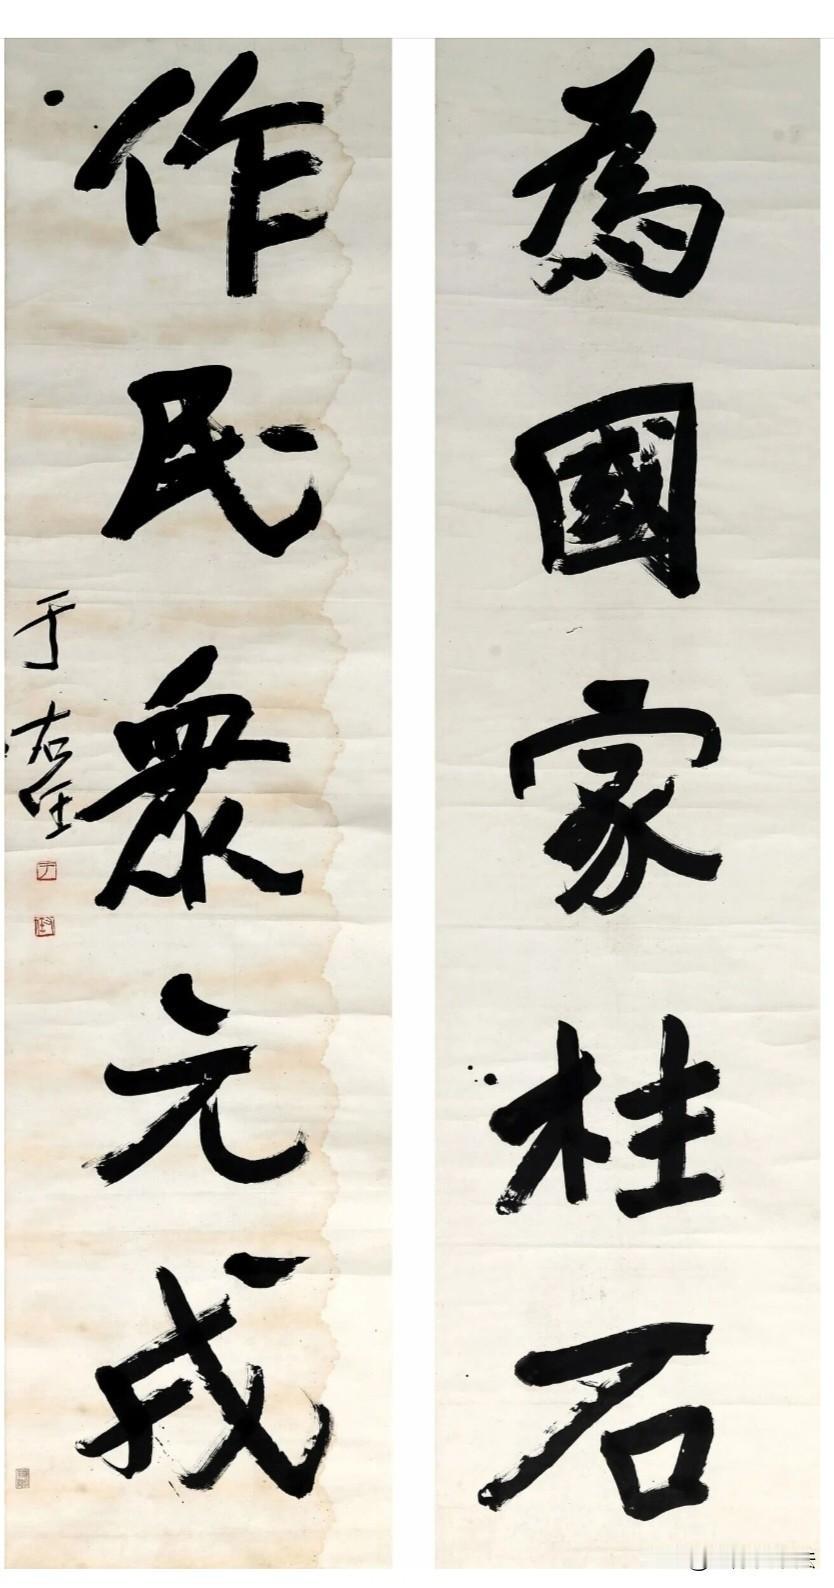 為國家柱石
作民眾元戎
于右任